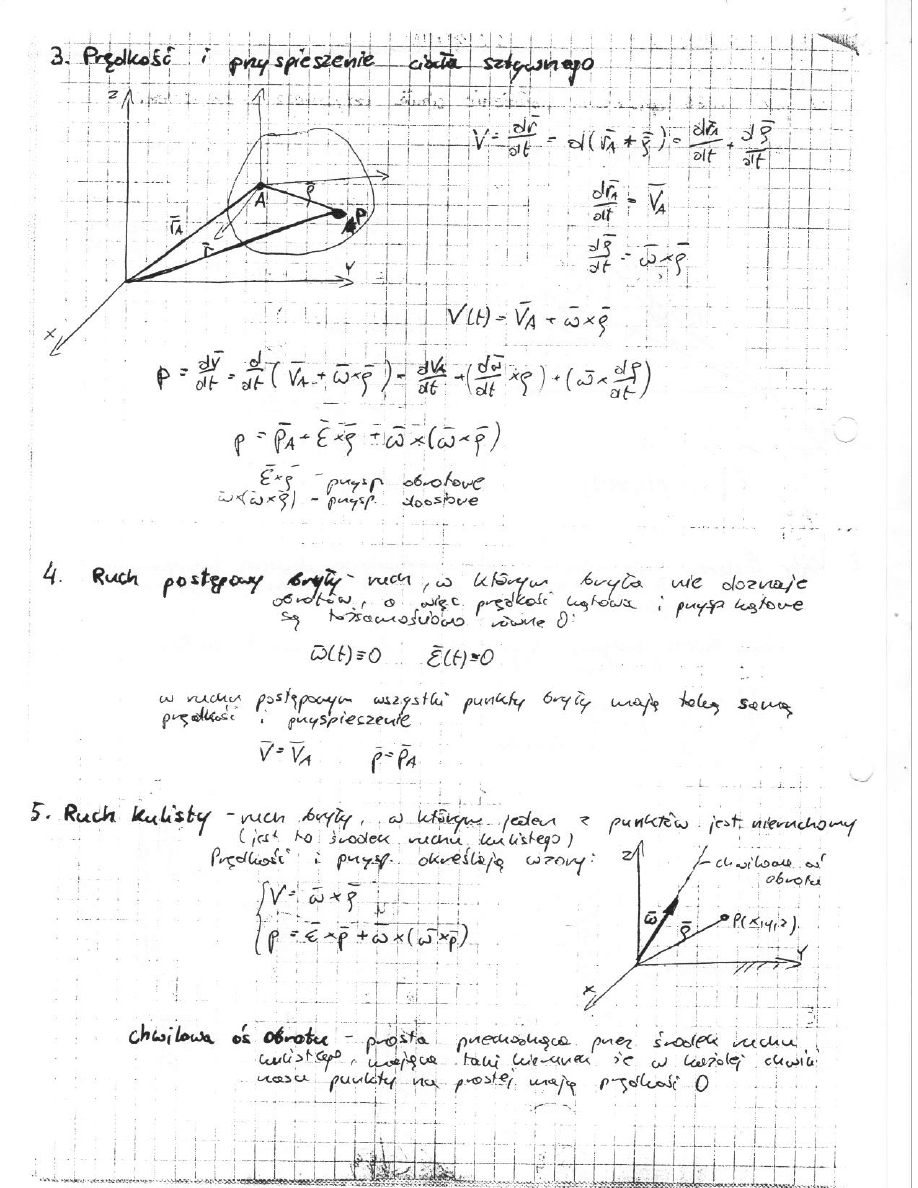 3. Prędkość i przyspieszenie ciała sztywnego
Z
A
ρ̄
P
r̄A
r̄
Y
X
V = dr̄/dt = d(r̄A + ρ̄) = dr̄A/dt + dρ̄/dt
dr̄A/dt = V̄A
dρ̄/dt = ω̄×ρ̄
V(t) = V̄A + ω̄×ρ̄
p = dv̄/dt = d/dt ( V̄A + ω̄×ρ̄ ) = dVA/dt + (dω̄/dt ×ρ) + (ω̄× dρ/dt)
p = p̄A + ε̄×ρ̄ + ω̄×(ω̄×ρ̄)
ε̄×ρ̄ - przysp obrotowe
ω̄×(ω̄×ρ̄) - przysp. doosiowe
4. Ruch postępowy bryły - ruch, w którym bryła nie doznaje
obrotów, a więc prędkość kątowa i przysp kątowe
są tożsamościowo równe 0:
ω̄(t)≡0 ε̄(t)≡0
w ruchu postępowym wszystki punkty bryły mają taką samą
prędkość i przyspieszenie
V̄ = V̄A p̄ = p̄A
5. Ruch kulisty - ruch bryły, w którym jeden z punktów jest nieruchomy
(jest to środek ruchu kulistego)
Prędkość i przysp. określają wzory:
V = ω̄×ρ̄
p = ε̄×ρ̄ + ω̄×(ω̄×ρ̄)
Z
chwilowa oś
obrotu
ω̄
ρ̄
P(x,y,z)
Y
X
chwilowa oś obrotu - prosta przechodząca przez środek ruchu
kulistego, mająca taki kierunek że w każdej chwili
nasze punkty na prostej mają prędkość 0